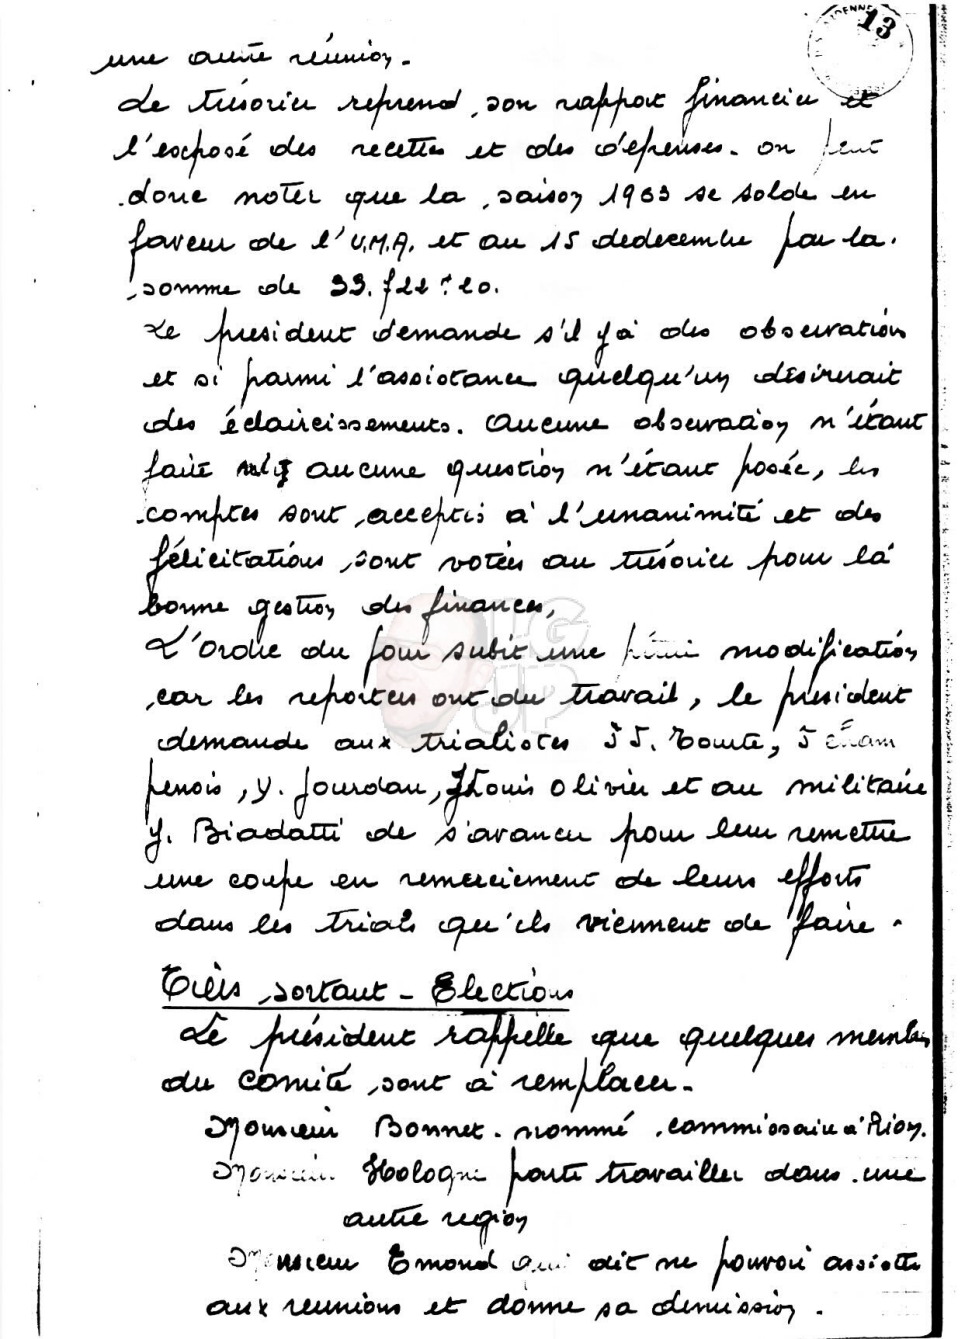 13
une autre réunion.
Le trésorier reprend son rapport financier et
l'exposé des recettes et des dépenses. on peut
donc noter que la saison 1963 se solde en
faveur de l'U.M.A. et au 15 dedecembre par la
somme de 33.
Le president demande s'il y a des observations
et si parmi l'assistance quelqu'un désirerait
des éclaircissements. Aucune observation n'étant
faite aucune question n'étant posée, les
comptes sont acceptés à l'unanimité et des
félicitations sont votées au trésorier pour la
bonne gestion des finances,
L'Ordre du jour subit une petite modification
car les reporters ont du travail, le président
demande aux trialistes J J. Tourte, J Cham
penois, Y. Jourdan, JLouis Olivier et au militaire
Y. Biadatti de s'avancer pour leur remettre
une coupe en remerciement de leurs efforts
dans les trials qu'ils viennent de faire.
Tiers sortant - Elections
Le président rappelle que quelques membres
du comité sont à remplacer.
Monsieur Bonnet. nommé commissaire à Riom.
Monsieur Hologne parti travailler dans une
autre region
Monsieur Emond qui dit ne pouvoir assister
aux reunions et donne sa demission.
HG
UP